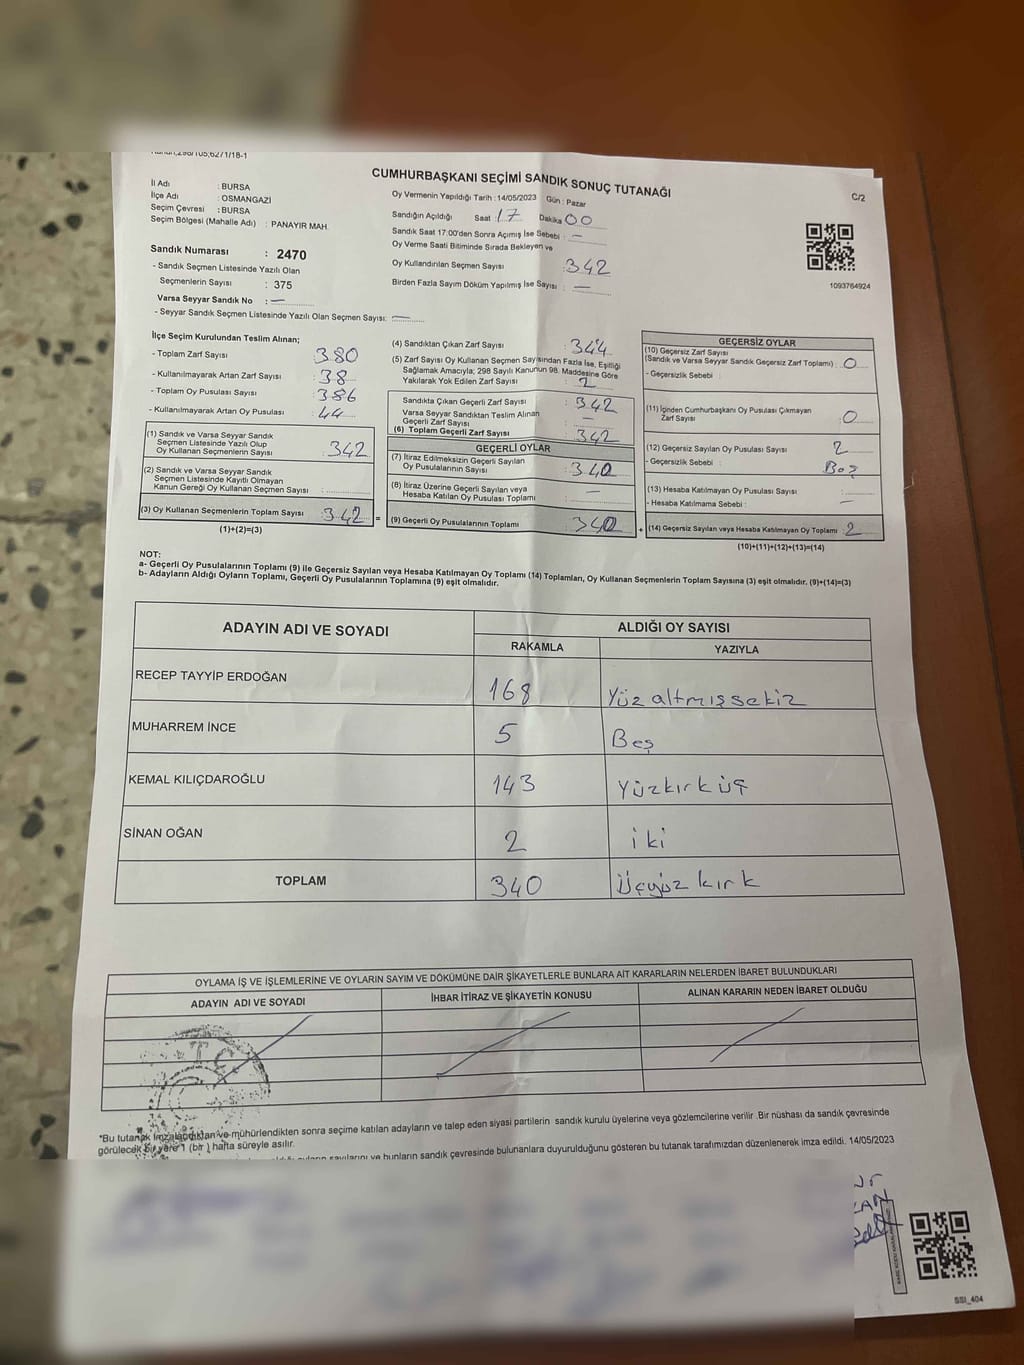 CUMHURBAŞKANI SEÇİMİ SANDIK SONUÇ TUTANAĞI
C/2
İl Adı : BURSA
İlçe Adı : OSMANGAZİ
Seçim Çevresi : BURSA
Seçim Bölgesi (Mahalle Adı) : PANAYIR MAH.
Sandık Numarası : 2470
- Sandık Seçmen Listesinde Yazılı Olan
Seçmenlerin Sayısı : 375
Varsa Seyyar Sandık No : —
- Seyyar Sandık Seçmen Listesinde Yazılı Olan Seçmen Sayısı: —
Oy Vermenin Yapıldığı Tarih : 14/05/2023 Gün : Pazar
Sandığın Açıldığı Saat : 17 Dakika 00
Sandık Saat 17:00'den Sonra Açımış İse Sebebi : —
Oy Verme Saati Bitiminde Sırada Bekleyen ve
Oy Kullandırılan Seçmen Sayısı : 342
Birden Fazla Sayım Döküm Yapılmış İse Sayısı : —
1093764924
İlçe Seçim Kurulundan Teslim Alınan;
- Toplam Zarf Sayısı : 380
- Kullanılmayarak Artan Zarf Sayısı : 38
- Toplam Oy Pusulası Sayısı : 386
- Kullanılmayarak Artan Oy Pusulası : 44
(1) Sandık ve Varsa Seyyar Sandık
Seçmen Listesinde Yazılı Olup
Oy Kullanan Seçmenlerin Sayısı : 342
(2) Sandık ve Varsa Seyyar Sandık
Seçmen Listesinde Kayıtlı Olmayan
Kanun Gereği Oy Kullanan Seçmen Sayısı :
(3) Oy Kullanan Seçmenlerin Toplam Sayısı : 342
(1)+(2)=(3)
(4) Sandıktan Çıkan Zarf Sayısı : 344
(5) Zarf Sayısı Oy Kullanan Seçmen Sayısından Fazla İse, Eşitliği
Sağlamak Amacıyla; 298 Sayılı Kanunun 98. Maddesine Göre
Yakılarak Yok Edilen Zarf Sayısı : 2
Sandıkta Çıkan Geçerli Zarf Sayısı : 342
Varsa Seyyar Sandıktan Teslim Alınan
Geçerli Zarf Sayısı : —
(6) Toplam Geçerli Zarf Sayısı : 342
GEÇERLİ OYLAR
(7) İtiraz Edilmeksizin Geçerli Sayılan
Oy Pusulalarının Sayısı : 340
(8) İtiraz Üzerine Geçerli Sayılan veya
Hesaba Katılan Oy Pusulası Toplamı : —
= (9) Geçerli Oy Pusulalarının Toplamı 340
GEÇERSİZ OYLAR
(10) Geçersiz Zarf Sayısı
(Sandık ve Varsa Seyyar Sandık Geçersiz Zarf Toplamı) : 0
- Geçersizlik Sebebi :
(11) İçinden Cumhurbaşkanı Oy Pusulası Çıkmayan
Zarf Sayısı : 0
(12) Geçersiz Sayılan Oy Pusulası Sayısı : 2
- Geçersizlik Sebebi : Boş
(13) Hesaba Katılmayan Oy Pusulası Sayısı :
- Hesaba Katılmama Sebebi : —
+ (14) Geçersiz Sayılan veya Hesaba Katılmayan Oy Toplamı 2
(10)+(11)+(12)+(13)=(14)
NOT:
a- Geçerli Oy Pusulalarının Toplamı (9) ile Geçersiz Sayılan veya Hesaba Katılmayan Oy Toplamı (14) Toplamları, Oy Kullanan Seçmenlerin Toplam Sayısına (3) eşit olmalıdır. (9)+(14)=(3)
b- Adayların Aldığı Oyların Toplamı, Geçerli Oy Pusulalarının Toplamına (9) eşit olmalıdır.
ADAYIN ADI VE SOYADI ALDIĞI OY SAYISI
RAKAMLA YAZIYLA
RECEP TAYYİP ERDOĞAN 168 Yüz altmış sekiz
MUHARREM İNCE 5 Beş
KEMAL KILIÇDAROĞLU 143 Yüzkırk üç
SİNAN OĞAN 2 iki
TOPLAM 340 Üçyüz kırk
OYLAMA İŞ VE İŞLEMLERİNE VE OYLARIN SAYIM VE DÖKÜMÜNE DAİR ŞİKAYETLERLE BUNLARA AİT KARARLARIN NELERDEN İBARET BULUNDUKLARI
ADAYIN ADI VE SOYADI İHBAR İTİRAZ VE ŞİKAYETİN KONUSU ALINAN KARARIN NEDEN İBARET OLDUĞU
T.C.
*Bu tutanak imzalandıktan ve mühürlendikten sonra seçime katılan adayların ve talep eden siyasi partilerin sandık kurulu üyelerine veya gözlemcilerine verilir .Bir nüshası da sandık çevresinde
görülecek bir yere 1 (bir ) hafta süreyle asılır.
sayılarını ve bunların sandık çevresinde bulunanlara duyurulduğunu gösteren bu tutanak tarafımızdan düzenlenerek imza edildi. 14/05/2023
SSI_404